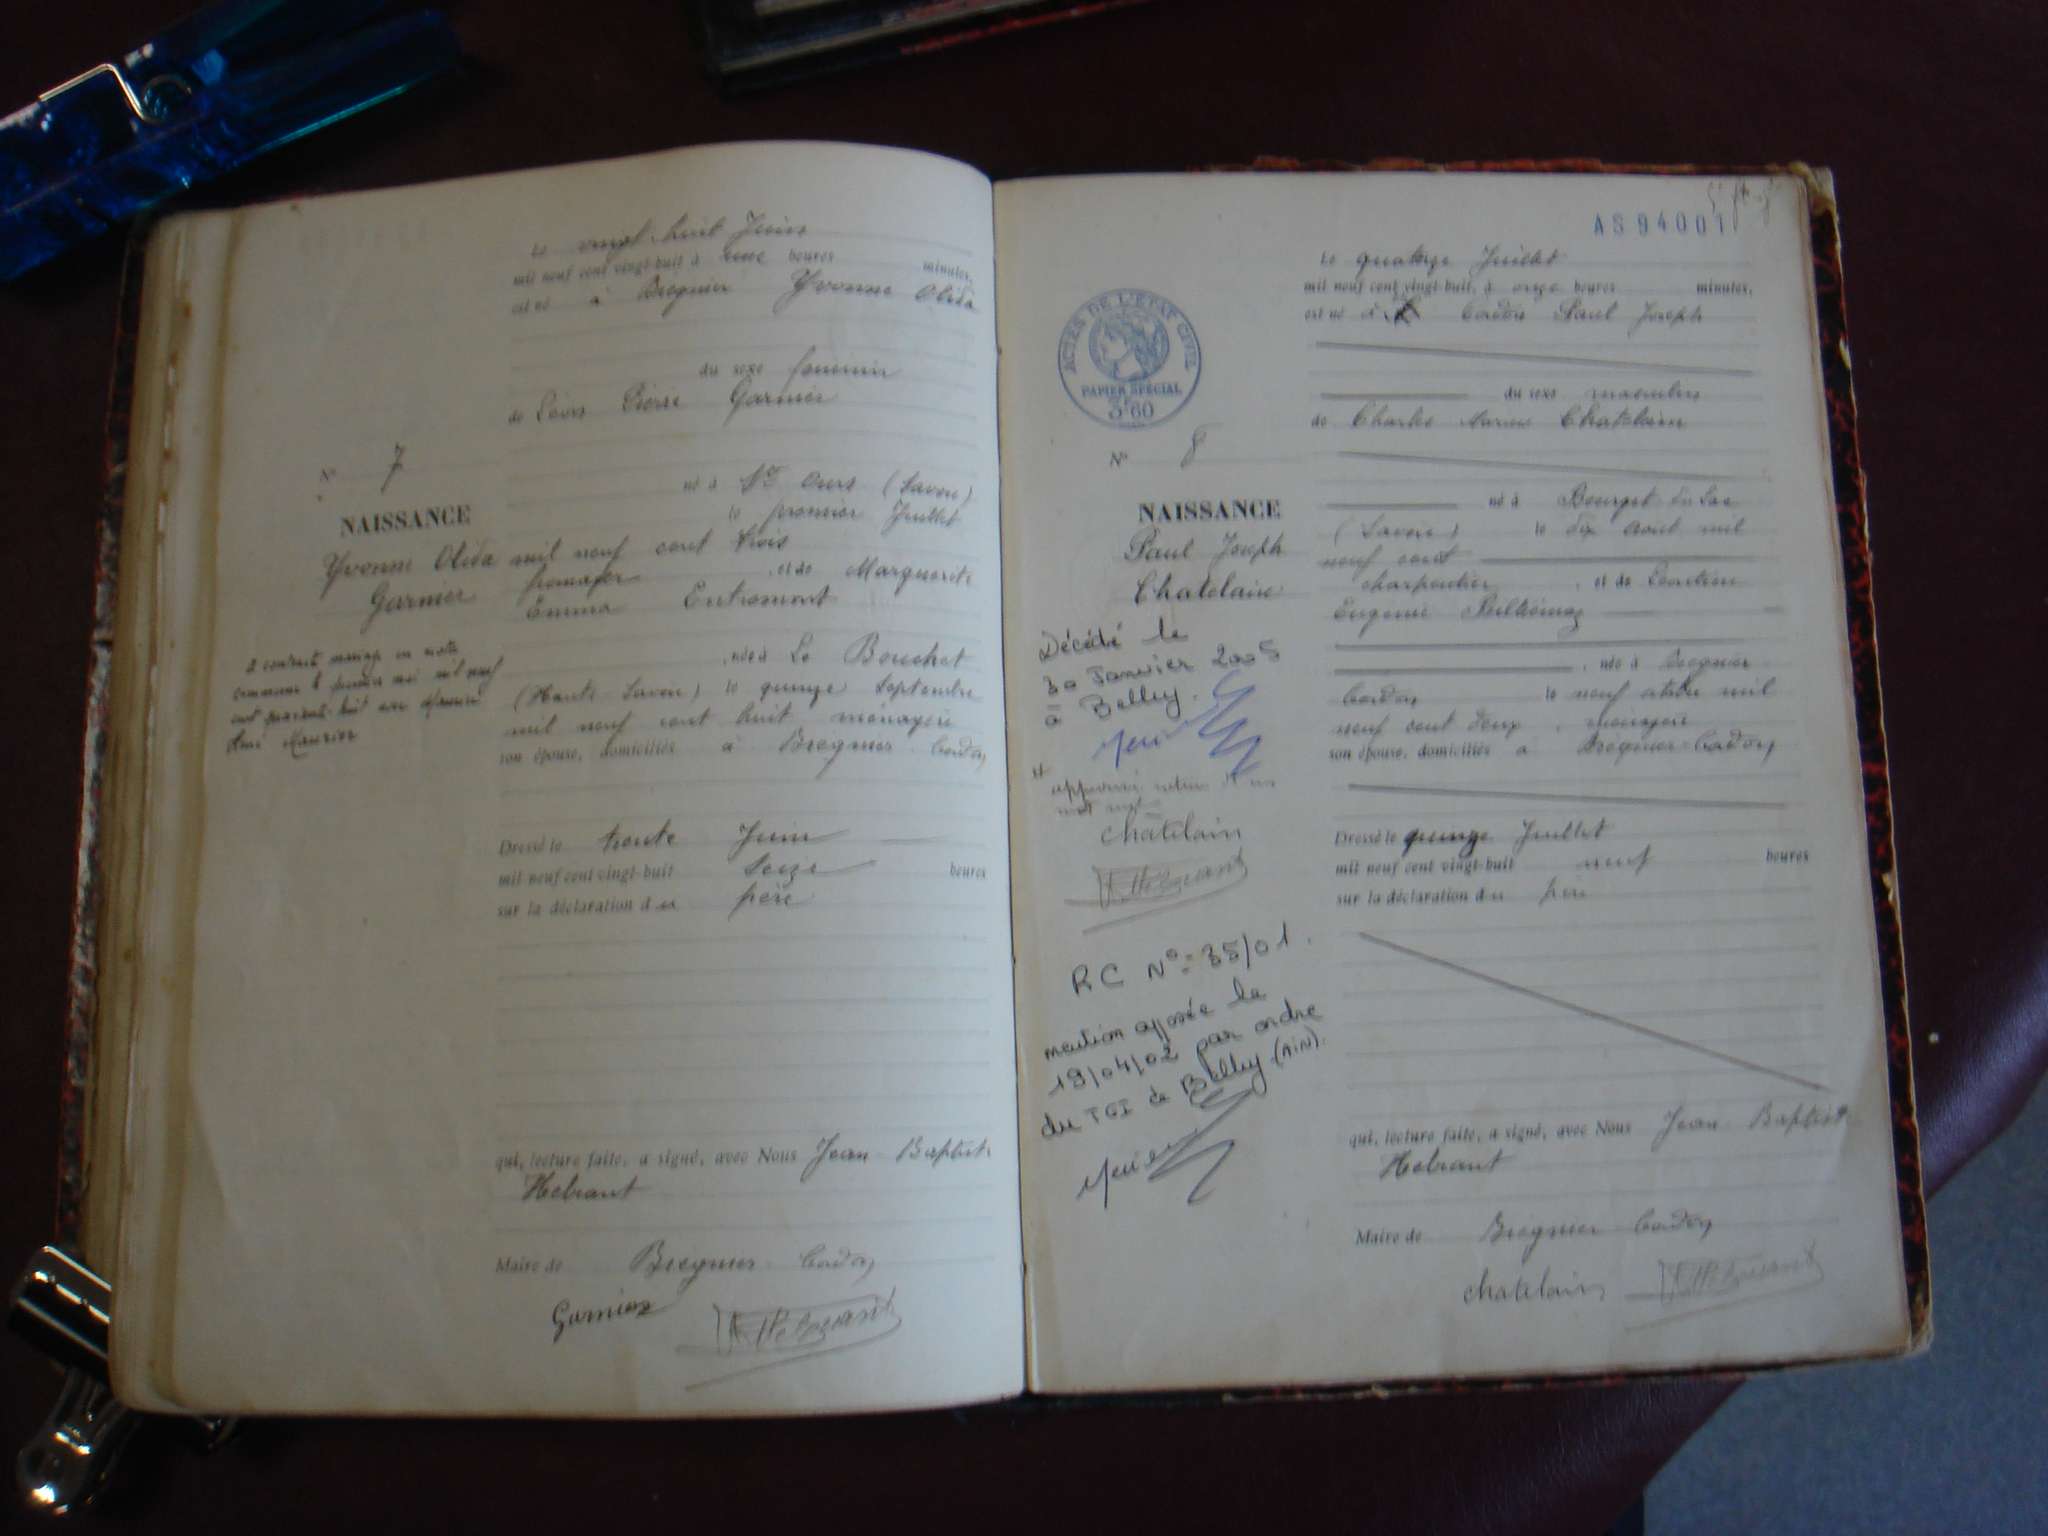 Le vingt-huit Juin
mil neuf cent vingt-huit à une heures minutes,
est né à Bregnier Yvonne Olida
du sexe féminin
de Léon Pierre Garnier
N° 7
né à St Ours (Savoie)
le premier Juillet
NAISSANCE
Yvonne Olida
Garnier
mil neuf cent trois
fromager, et de Marguerite
Emma Entremont
a contracté mariage en notre
commune le premier mai mil neuf
cent quarante-huit avec
Aimé
, née à Le Bouchet
(Haute Savoie) le quinze Septembre
mil neuf cent huit ménagère
son épouse, domiciliés à Bregnier-Cordon
Dressé le trente Juin
mil neuf cent vingt-huit Seize heures
sur la déclaration du père
qui, lecture faite, a signé, avec Nous Jean-Baptiste
Hebrant
Maire de Bregnier-Cordon
Garnier
AS 94001
Le quatorze Juillet
mil neuf cent vingt-huit, à onze heures minutes,
est né à Cordon Paul Joseph
ACTES DE L'ETAT CIVIL
PAPIER SPÉCIAL
3F60
du sexe masculin
de Charles Marius Chatelain
N° 8
NAISSANCE
Paul Joseph
Chatelain
né à Bourget du Lac
(Savoie) le dix Août mil
neuf cent
charpentier, et de
Eugenie
, née à Bregnier
Cordon le neuf mil
neuf cent deux, ménagère
son épouse, domiciliés à Bregnier-Cordon
Décédé le
30 Janvier 2005
à Belley.
mot nul
chatelain
RC N°: 35/01.
mention apposée le
19/04/02 par ordre
du TGI de Belley (AIN).
Dressé le quinze Juillet
mil neuf cent vingt-huit neuf heures
sur la déclaration du père
qui, lecture faite, a signé, avec Nous Jean-Baptiste
Hebrant
Maire de Bregnier-Cordon
chatelain